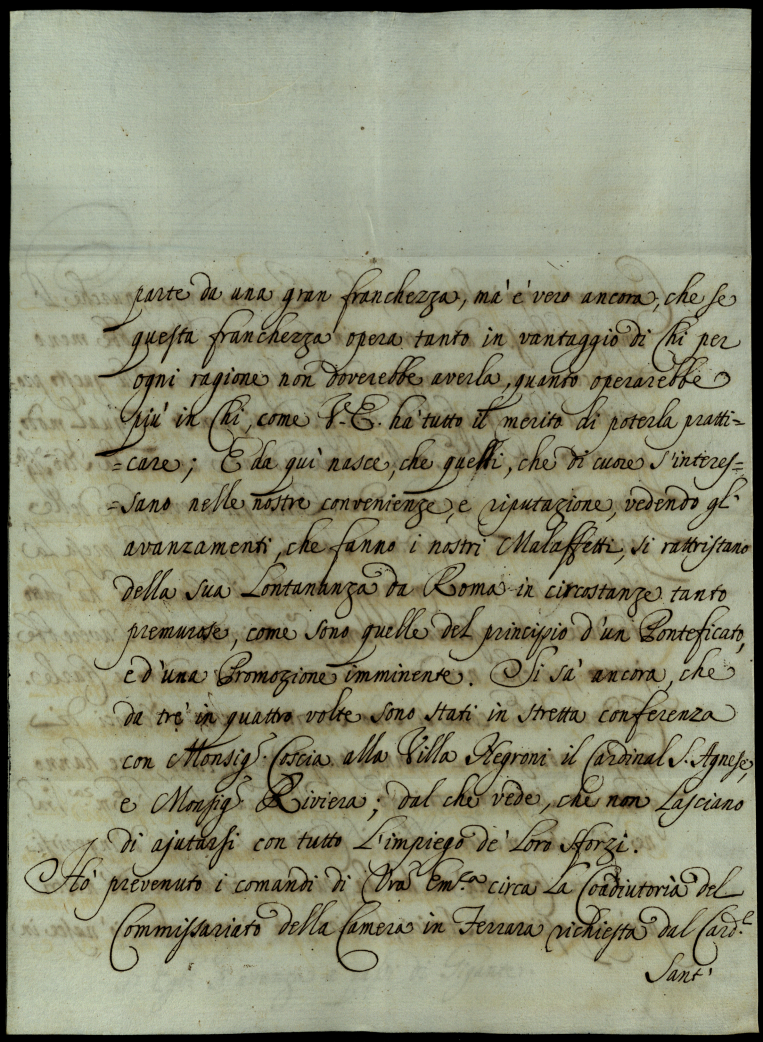 parte da una gran franchezza, mà è vero ancora, che se
questa franchezza opera tanto in vantaggio di Chi per
ogni ragione non doverebbe averla, quanto operarebbe
più in Chi, come V. E. hà tutto il merito di poterla pratti=
=care; E da quì nasce, che quelli, che di cuore s'interes=
=sano nelle nostre convenienze, e riputazione, vedendo gl'
avanzamenti, che fanno i nostri Malaffetti, si rattristano
della sua Lontananza da Roma in circostanze tanto
premurose, come sono quelle del principio d'un Ponteficato,
e d'una Promozione imminente. Si sà ancora, che
da trè in quattro volte sono stati in stretta conferenza
con Monsig.r Coscia alla Villa Negroni il Cardinal S. Agnese,
e Monsig.r Riviera; dal che vede, che non Lasciano
di ajutarsi con tutto L'impiego de' Loro sforzi.
Hò prevenuto i comandi di Vra Em.za circa La Coadiutoria del
Commissariato della Camera in Ferrara richiesta dal Card.l
Sant'